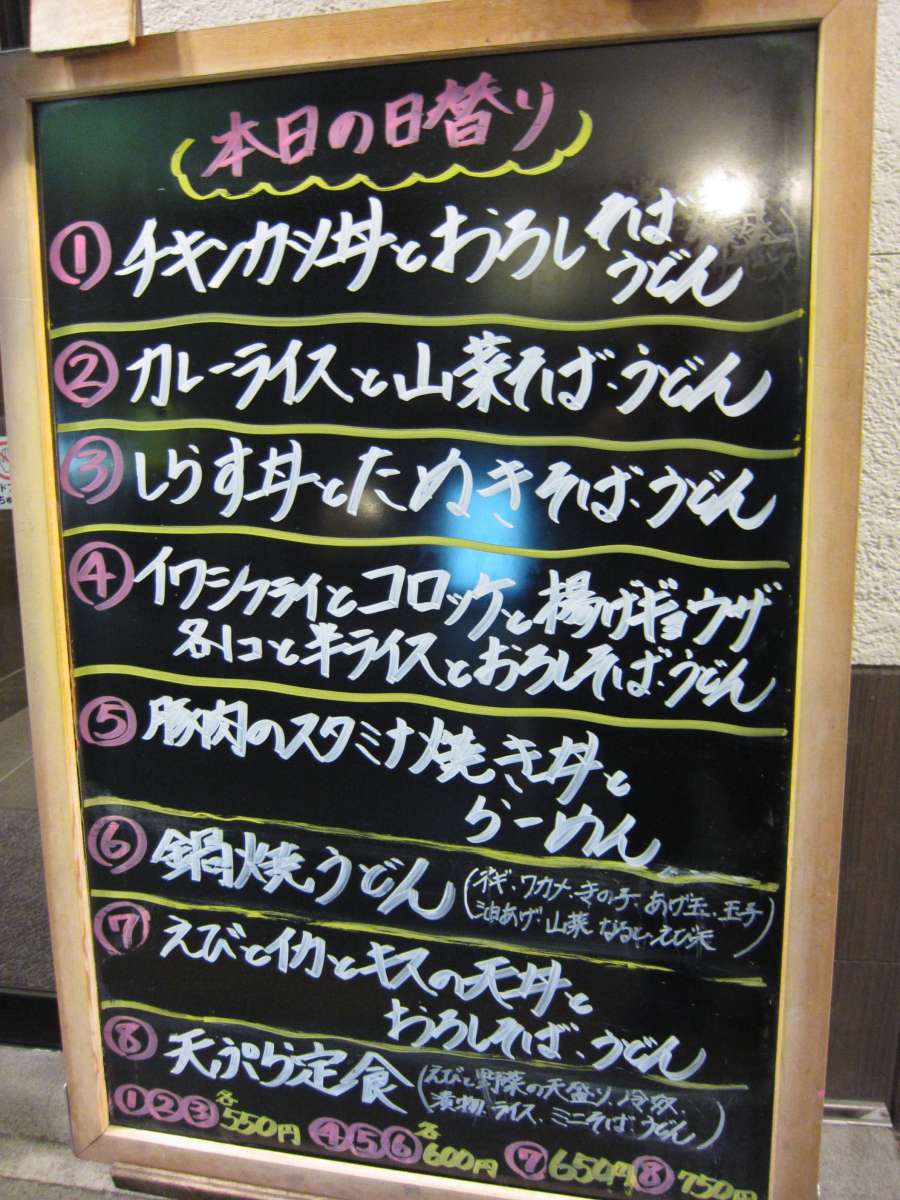 本日の日替り
① チキンカツ丼とおろしそば
うどん
② カレーライスと山菜そば・うどん
③ しらす丼とたぬきそば・うどん
④ イワシフライとコロッケと揚げギョウザ
各1コと半ライスとおろしそば・うどん
⑤ 豚肉のスタミナ焼き丼と
らーめん
⑥ 鍋焼うどん
(ネギ、ワカメ、きの子、あげ玉、玉子
油あげ、山菜、なると、えび天)
⑦ えびとイカとキスの天丼と
おろしそば、うどん
⑧ 天ぷら定食
(えびと野菜の天盛り、冷奴、
漬物、ライス、ミニそば、うどん)
①②③各550円 ④⑤⑥各600円 ⑦650円 ⑧750円